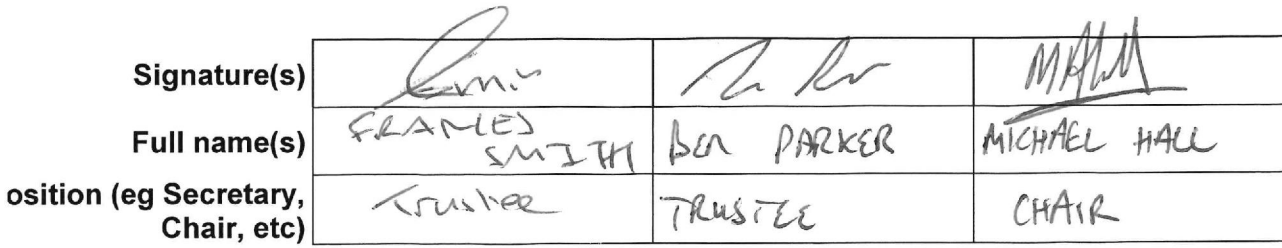 Signature(s)
Full name(s) FRANCES SMITH BEN PARKER MICHAEL HALL
osition (eg Secretary, Trustee TRUSTEE CHAIR
Chair, etc)